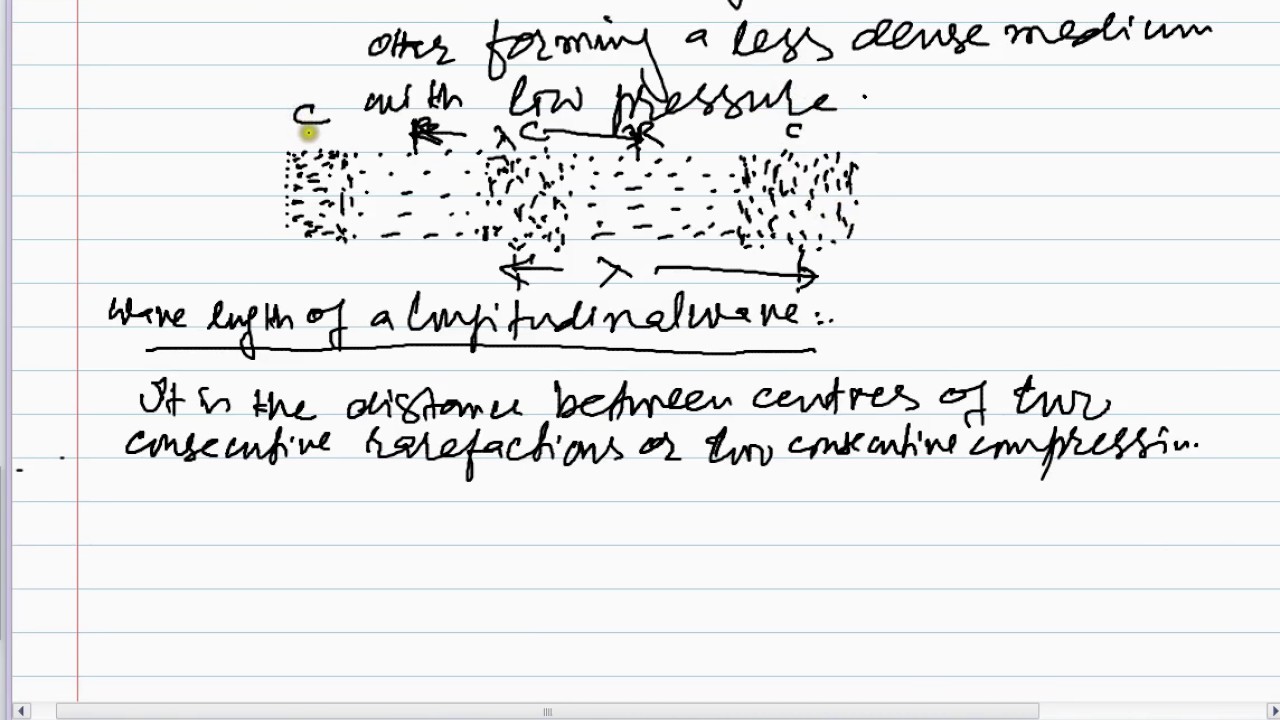 other forming a less dense medium
with low pressure.
C R λ C R C
λ
Wave length of a longitudinal wave:.
It is the distance between centres of two
consecutive rarefactions or two consecutive compression.